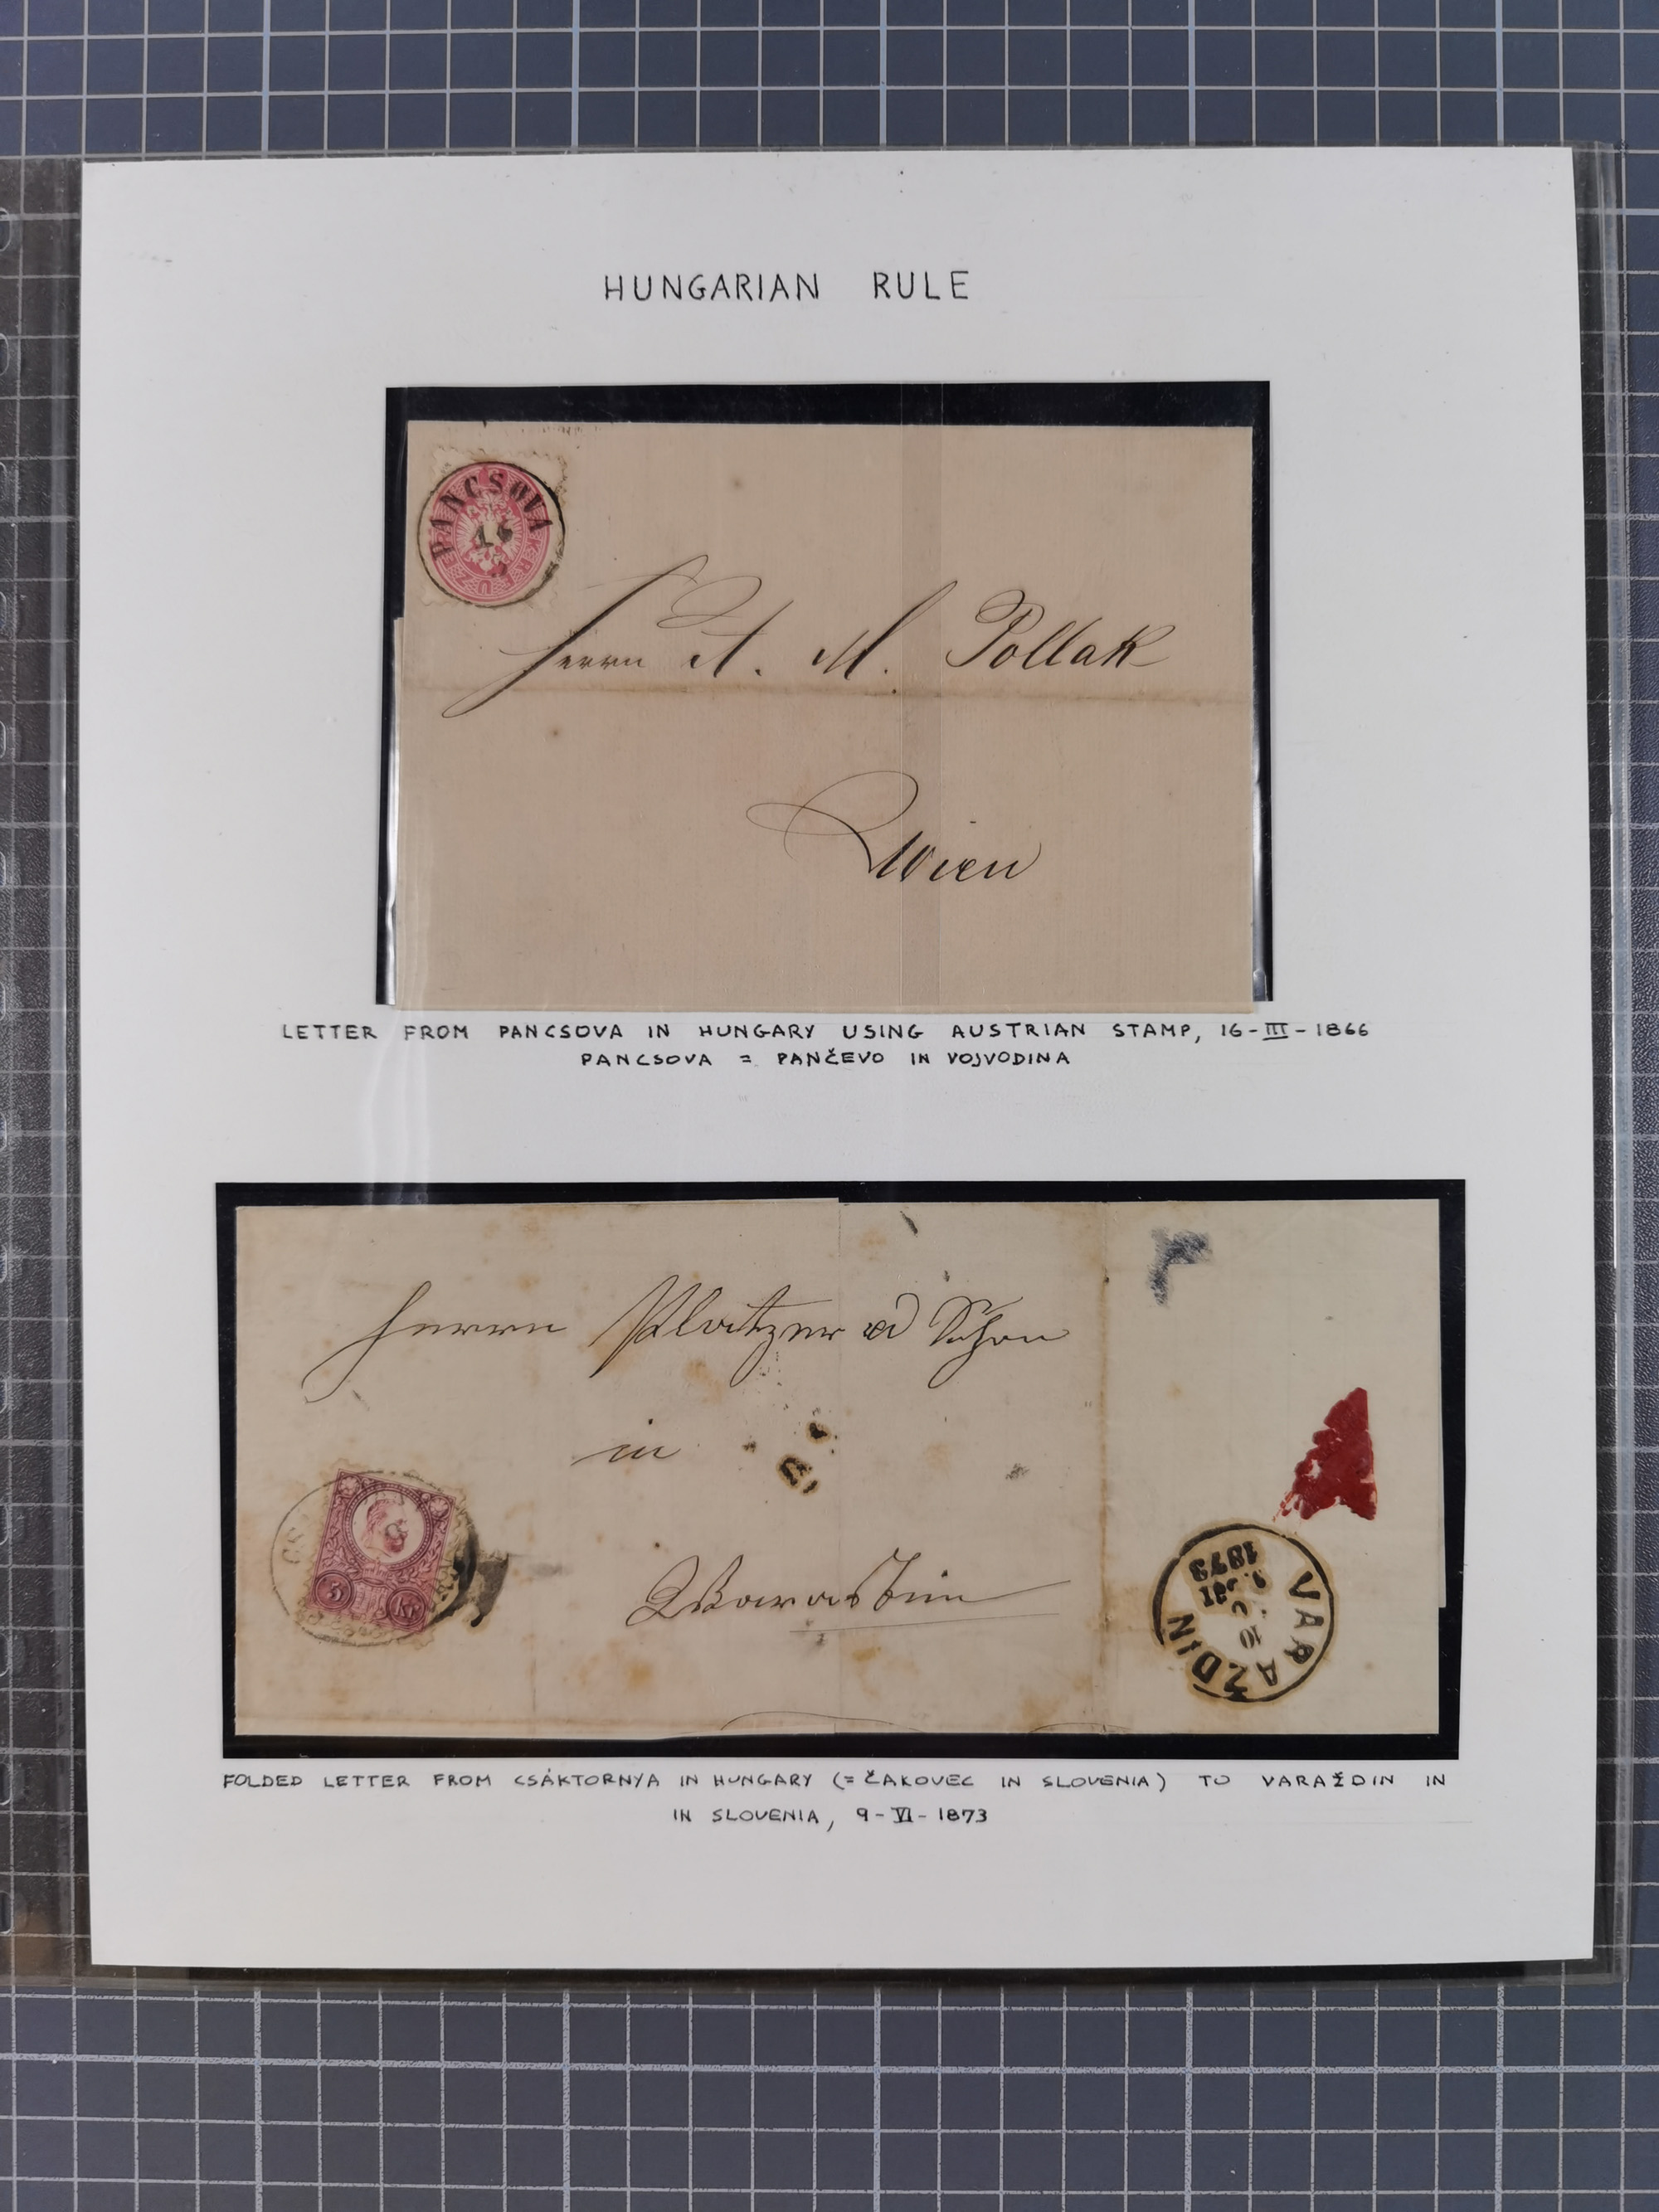 HUNGARIAN RULE
PANCSOVA
16
KREUZER
Herrn A. M. Pollak
Wien
LETTER FROM PANCSOVA IN HUNGARY USING AUSTRIAN STAMP, 16-III-1866
PANCSOVA = PANČEVO IN VOJVODINA
Herrn
in
5 Kr
VARAŽDIN
1873
FOLDED LETTER FROM CSÁKTORNYA IN HUNGARY (= ČAKOVEC IN SLOVENIA) TO VARAŽDIN IN
IN SLOVENIA, 9-VI-1873